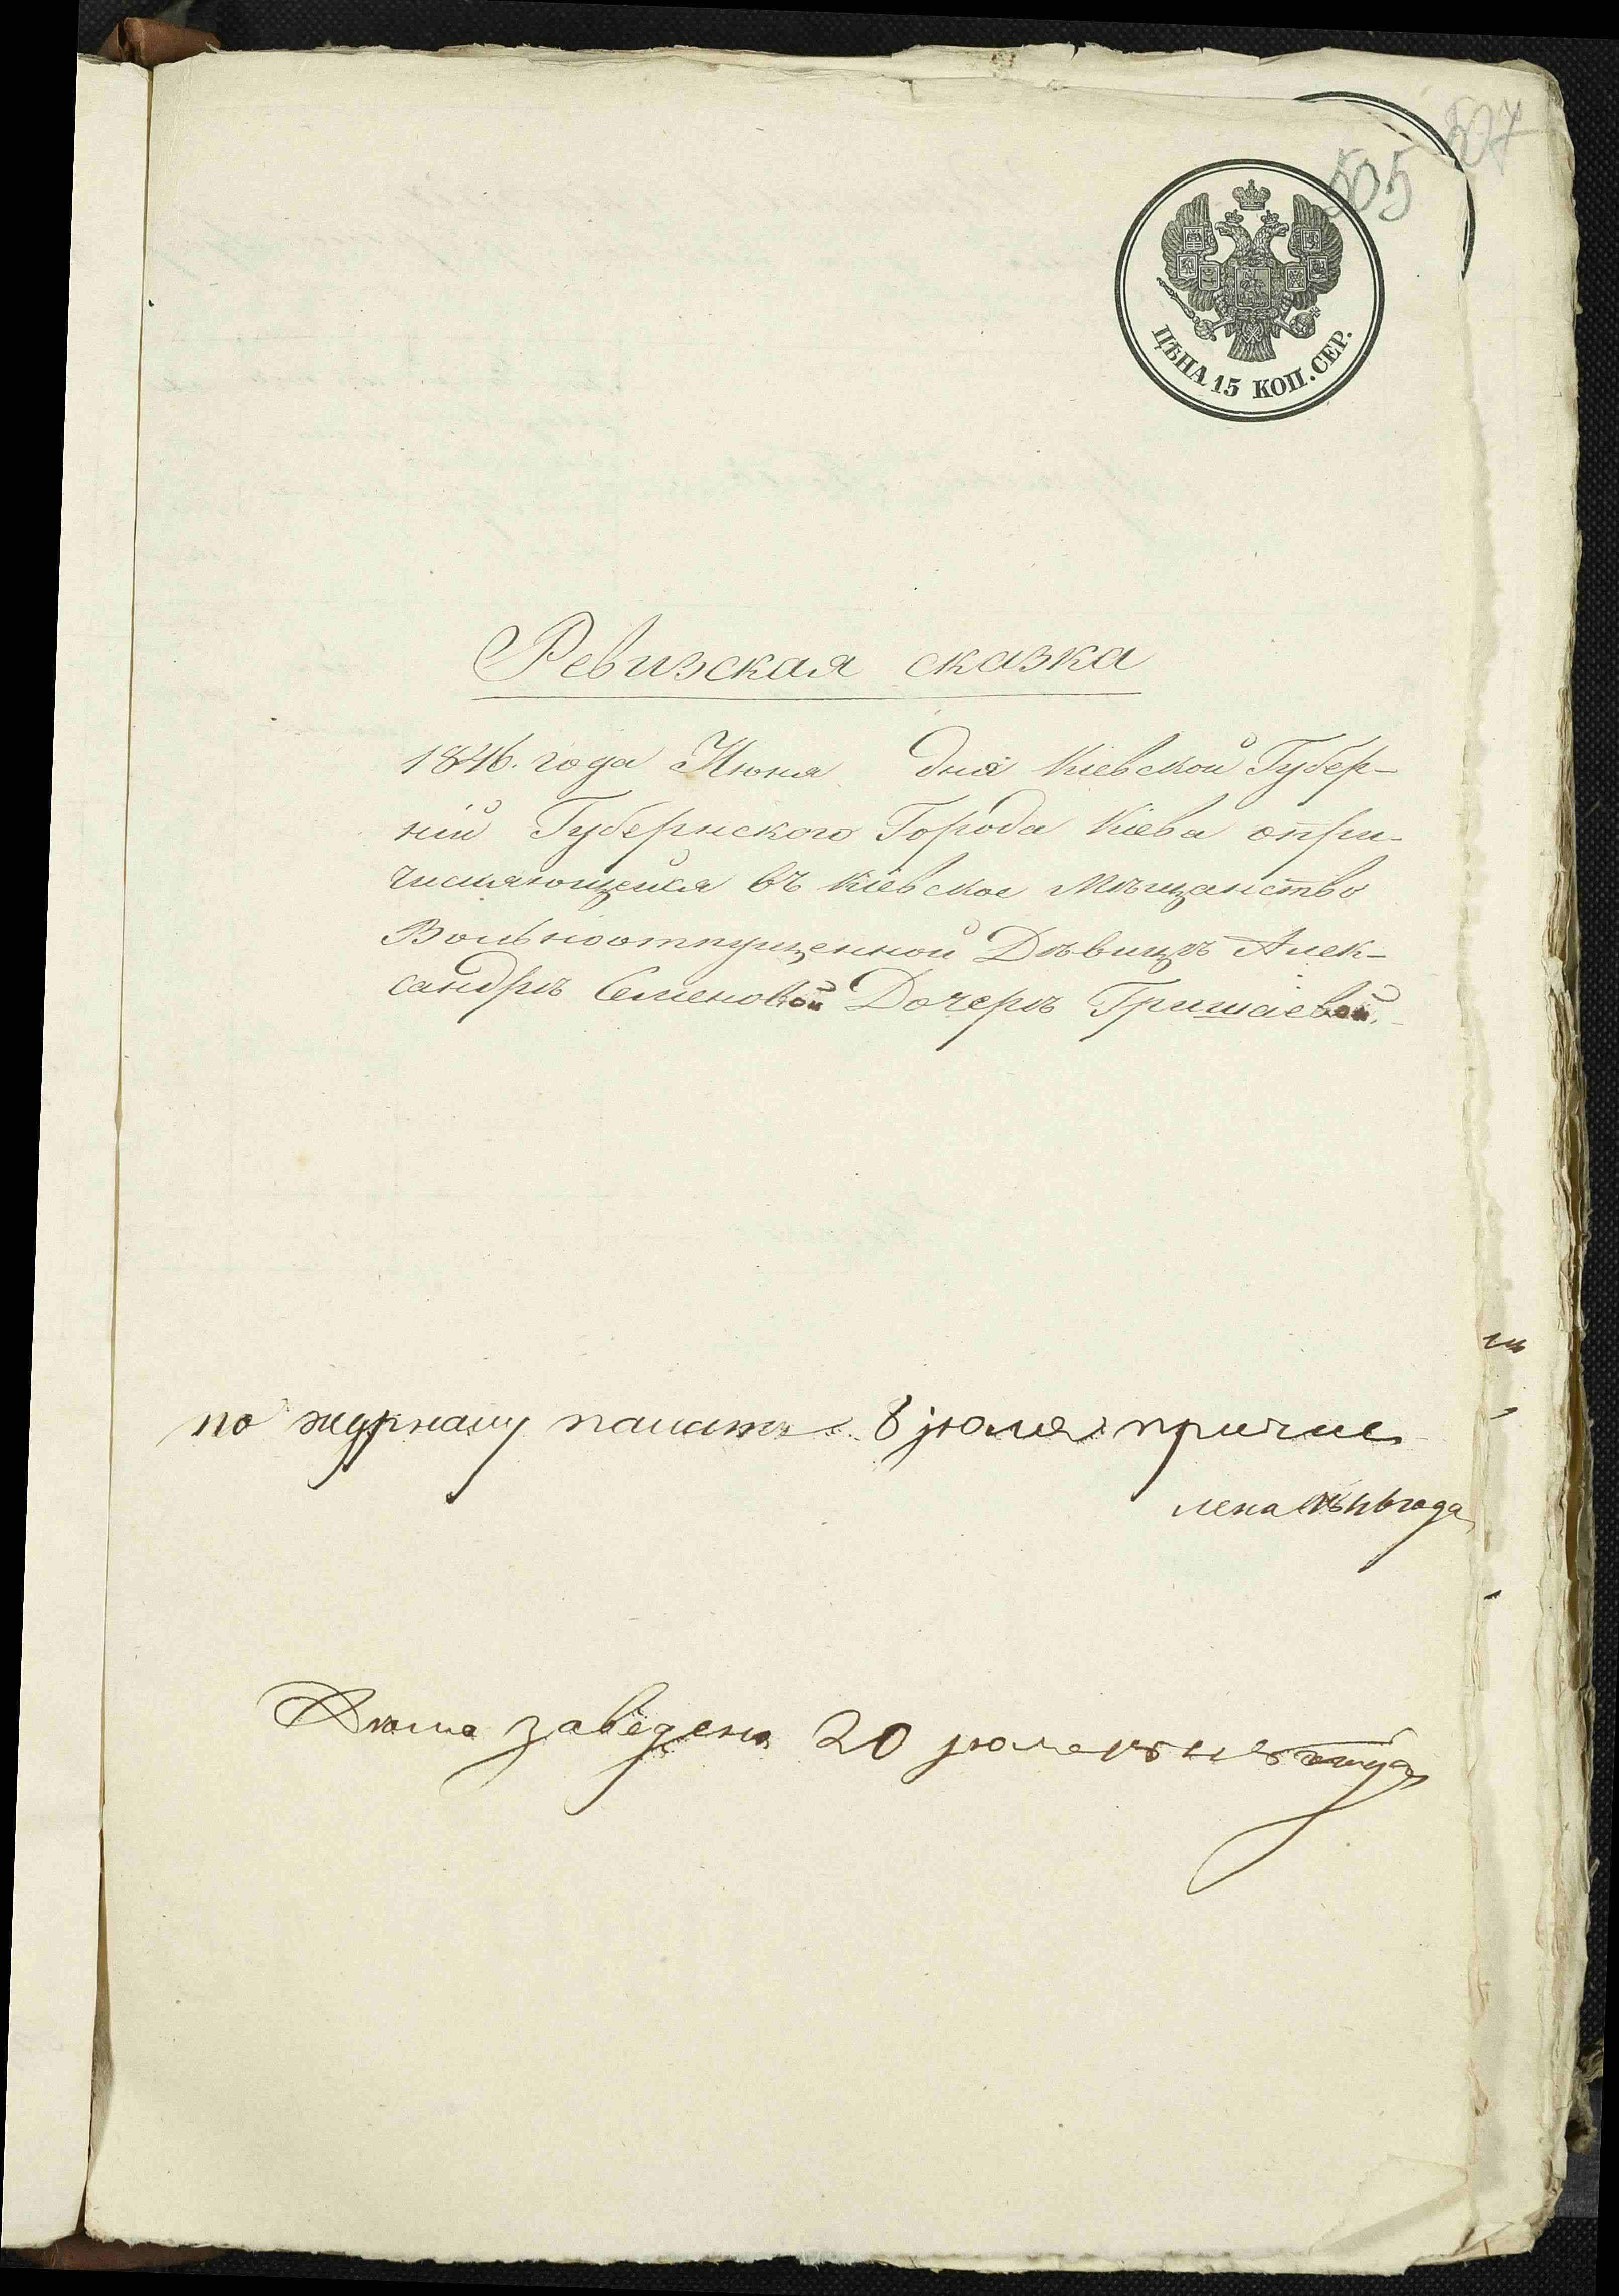 507
505
ЦѢНА 15 КОП. СЕР.
Ревизская сказка
1846. года Июня дня Кіевской Губер-
ніи Губернскаго Города Кіева опри-
числяющейся въ Кіевское Мѣщанство
Вольноотпущенной Дѣвицѣ Алек-
сандрѣ Семеновой Дочерѣ Гришаевой.
по журналу палаты 8 июля причис
лена с 1846 года
заведена 20 июля